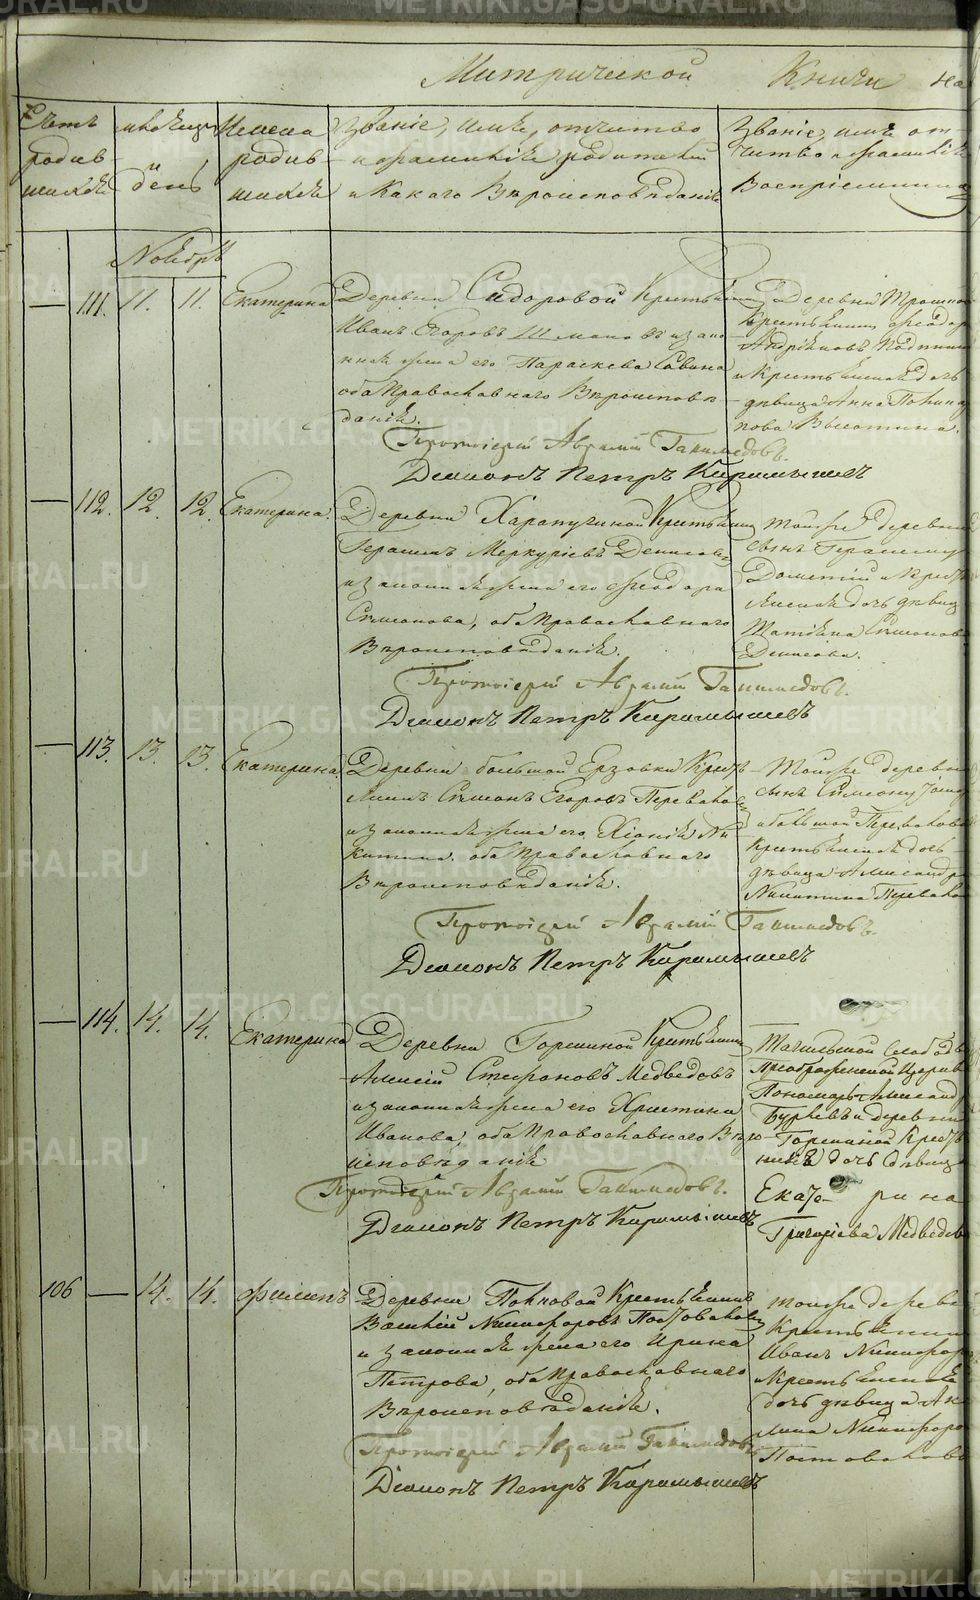 Метрической Книги на
Счетъ родив- шихся
мѣсяцъ и день
Имена родив- шихся
Званіе, имя, отчество
и фамилія родителей
и какаго Вѣроисповѣданія
Званіе, имя от-
чество и фамилія
Воспріемника
Ноябрь
111. 11. 11. Екатерина
Деревни Сидоровой Крестьянинъ
Иванъ Егоровъ и закон-
ная жена его Параскева Савина
оба Православнаго Вѣроисповѣ-
данія.
Протоіерей Аврамій Ганимедовъ.
Діаконъ Петръ Карамышевъ
Деревни
Крестьянинъ Феодоръ
Андріяновъ
и Крестьянская дочь
дѣвица Анна
112. 12. 12. Екатерина.
Деревни Харапугиной Крестьянинъ
Герасимъ Меркуріевъ Денисовъ
и законная жена его Феодора
Симеонова, оба Православнаго
Вѣроисповѣданія.
Протоіерей Аврамій Ганимедовъ.
Діаконъ Петръ Карамышевъ
Тойже деревни
сынъ Герасиму
Дометій и Крест-
янская дочь дѣвица
Татіяна Симеонова
Денисова.
113. 13. 13. Екатерина.
Деревни большой Ерзовки Крест-
янинъ Симеонъ Егоровъ Перевалов
и законная жена его Хіонія Ни-
китина. оба Православнаго
Вѣроисповѣданія.
Протоіерей Аврамій Ганимедовъ.
Діаконъ Петръ Карамышевъ
Тойже деревни
сынъ Симеону
Перевалов
Крестьянская дочь
дѣвица Александра
Никитина Перевалов
114. 14. 14. Екатерина
Деревни Горшиной Крестьянинъ
Алексій Стефановъ Медведовъ
и законная жена его Христина
Иванова, оба Православнаго Вѣро-
исповѣданія
Протоіерей Аврамій Ганимедовъ.
Діаконъ Петръ Карамышевъ
Тагильской Слободы
Преображенской Церкви
Пономарь Александръ
и деревни
Горшиной Крестья-
дочь дѣвица
Екате- рина
Григорьева Медведев
106 14. 14. Филипъ
Деревни Поповой Крестьянинъ
Василій Никифоровъ Постовалов
и законная жена его Ирина
Петрова, оба Православнаго
Вѣроисповѣданія.
Протоіерей Аврамій Ганимедовъ
Діаконъ Петръ Карамышевъ
Тойже дерев
Крестьянинъ
Иванъ Никифоров
и Крестьянская
дочь дѣвица Аку-
лина Никифоро
Постовалов
METRIKI.GASO-URAL.RU